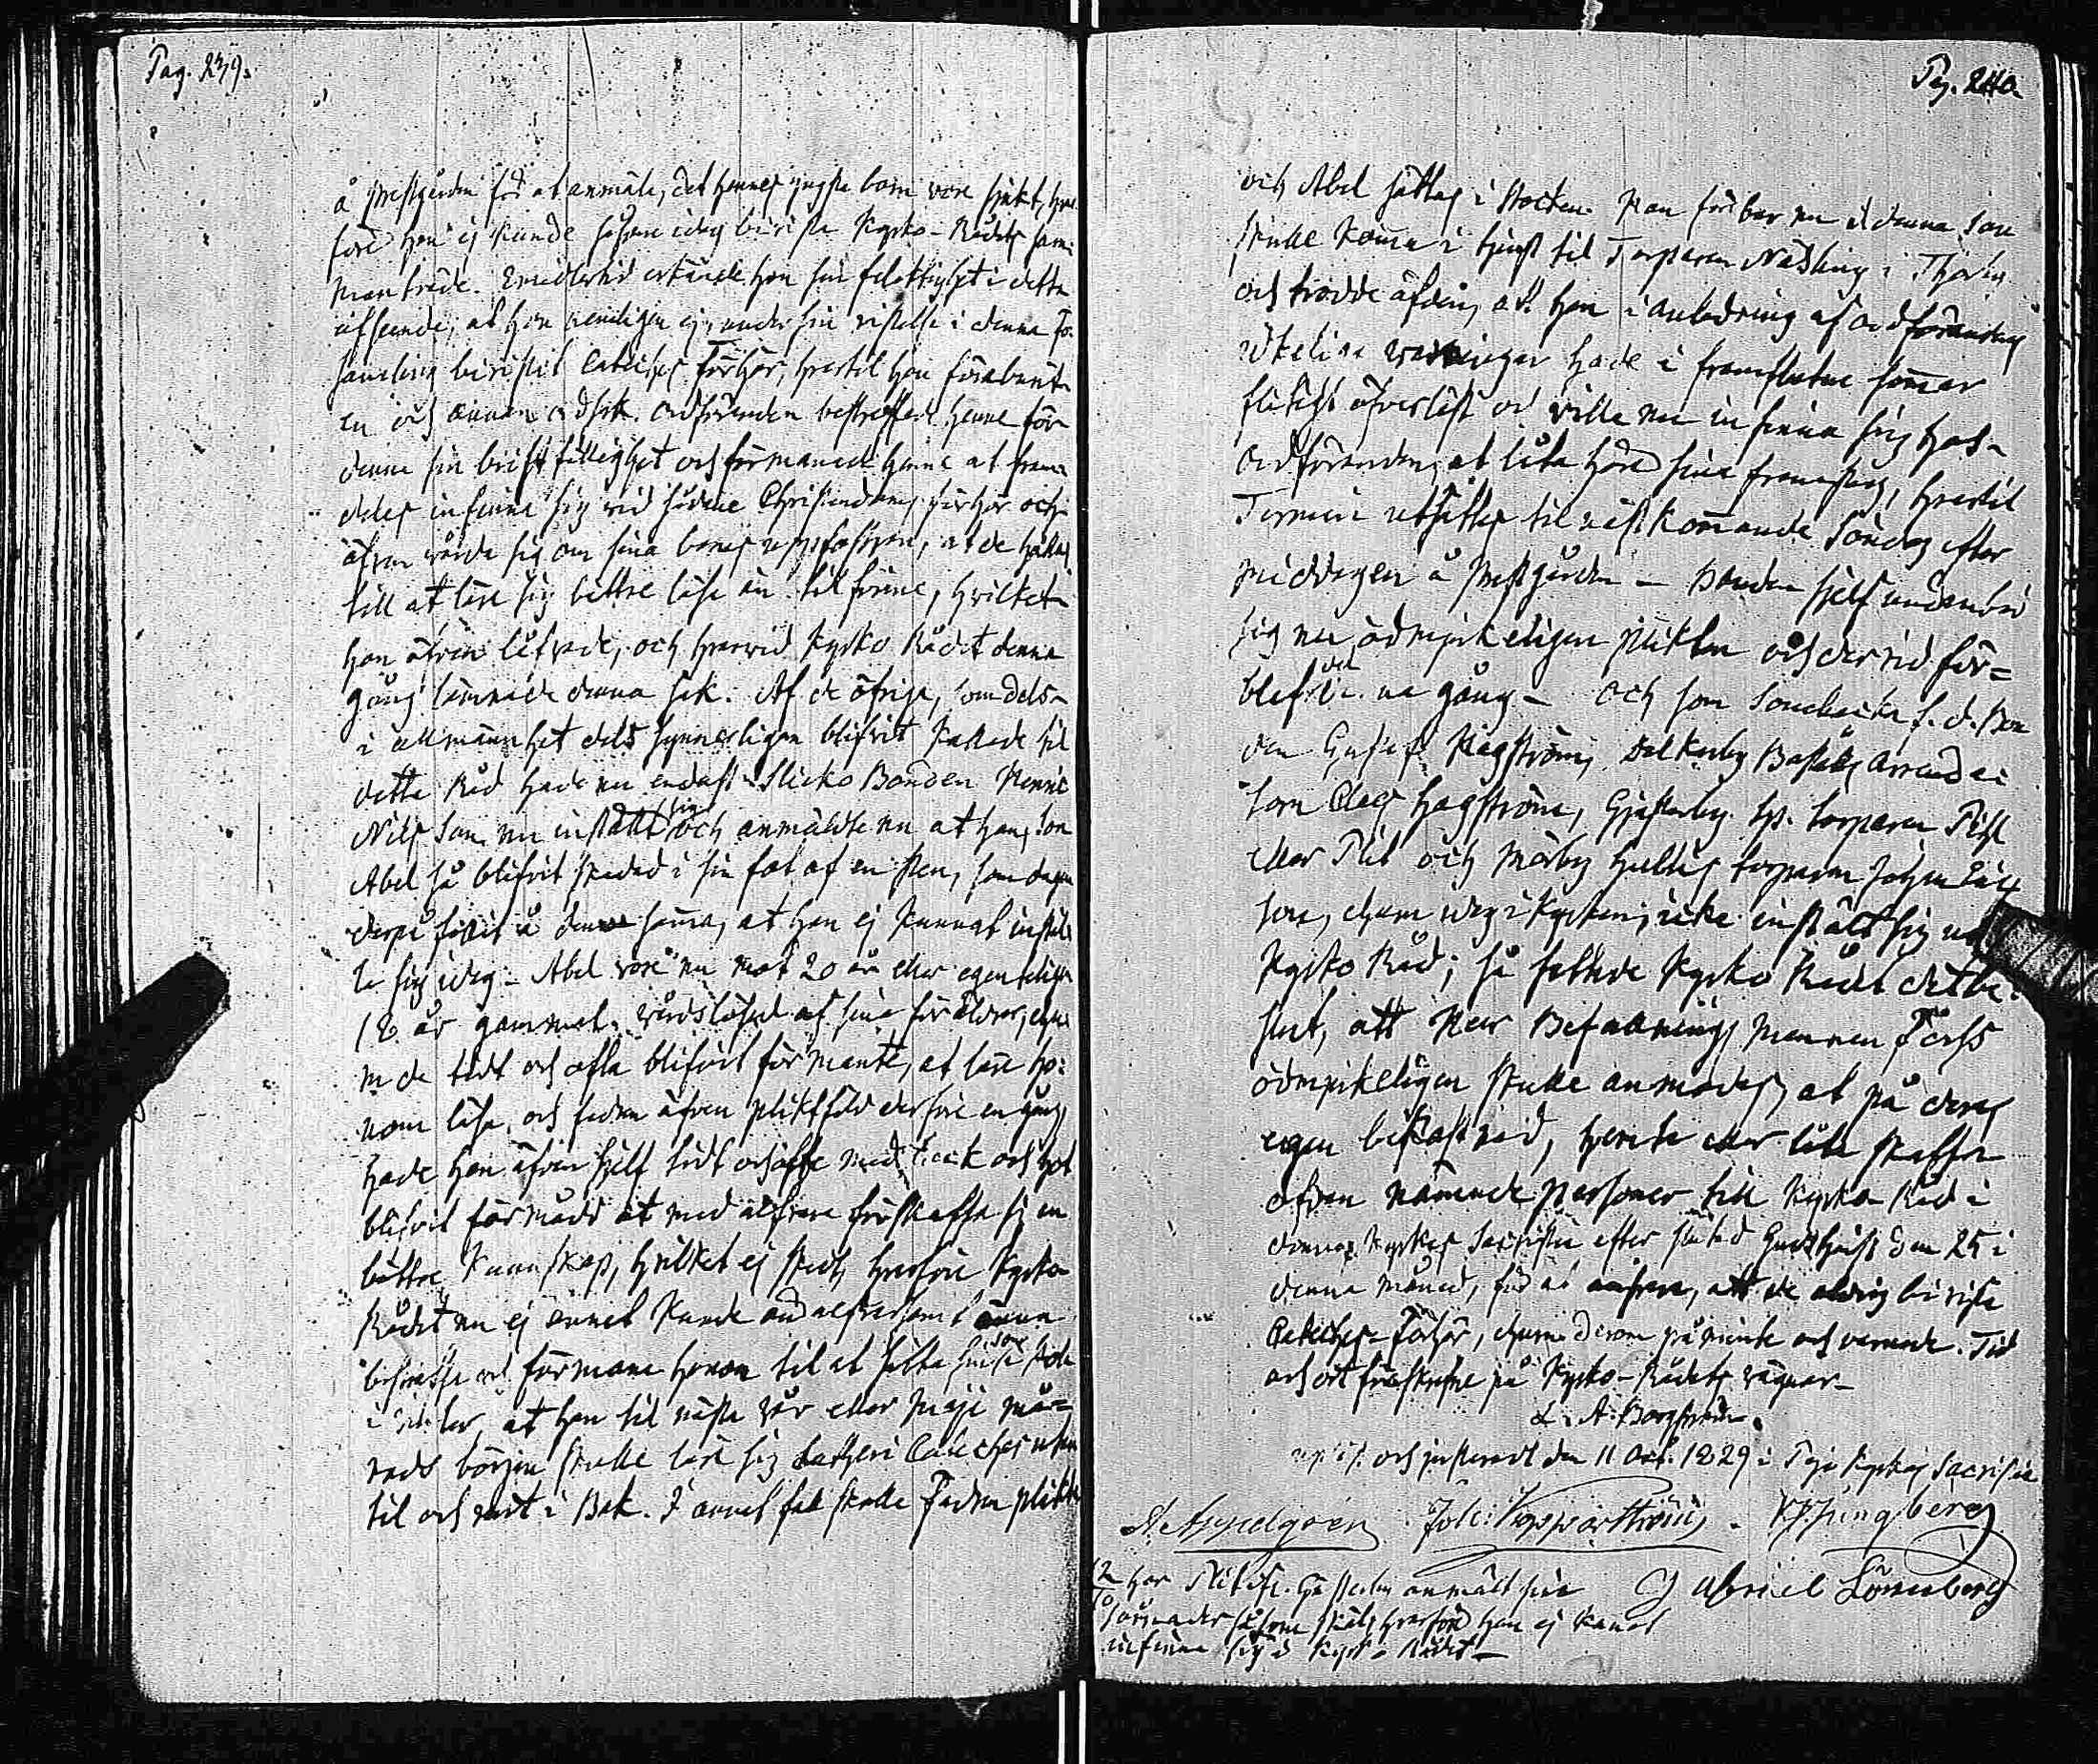 Pag. 239.
å prestgården för at anmäla, det hennes yngsta barn vore sjukt, hvar
före hon ej kunde såsom idag bivista Kyrko-Rådets sam-
manträde. Emedlertid erkände hon sin felaktighet i detta
afseende, at hon nemligen ej, under sin vistelse i denna För-
samling bivistat Catechesförhör, hvartil hon förebar
en och annan orsak. Ordföranden bestraffade henne för
denna sin bristfällighet och förmanade henne at fram-
deles infinna sig vid sådane Christendoms förhör och
äfven vårda sig om sina barns uppfostran, at de hållas
till at lära sig bättre läsa än tilförene, hvilket
hon äfven låfvade, och hvarvid Kyrko Rådet denna
gång lämnade denna sak. Af de öfriga, som dels
i allmänhet dels synnerligen blifvit kallade til
detta Råd hade nu endast Slicko Bonden Henric
Nils son nu inställt sig och anmälde nu at hans son
Abel så blifvit skadad i sin fot af en sten, som
derpå fallit å densamma, at han ej kunnat instäl-
la sig idag. Abel vore nu mot 20 år eller egentligen
18 år gammal, vårdslösad af sina föräldrar,
de tidt och ofta blifvit förmante, at lära ho-
nom läsa, och fadren äfven pliktfäld derföre en gång,
hade han äfven sjelf tidt och ofta med och
blifvit förmådd at med alfvare förskaffa sig en
bättre kunskap, hvilket ej skedt, hvarföre Kyrko
Rådet nu ej annat kunde än alfvarsamt
bestraffa och förmana honom til at sätta
i at han til nästa vår eller Maji må-
nads början skulle lära sig Lutheri Catechesutan
til och rent i Bok. I annat fall skulle Fadren plikta
Pag. 240.
och Abel sättas i stocken. Han förebar nu at denna son
skulle komma i tjenst til Torparen Nääsling i
och trodde äfven, at han i anledning af ordförandens
varningar hade i framflutne sommar
flitigt öfverläst och ville nu infinna sig hos
Ordföranden, at låta höra sina framsteg, hvartil
Termin utsättes til nästkommande Söndag efter
middagen å prestgården — Bonden sjelf undanbad
sig nu ödmjukeligen plikten och dervid för-
blef det denna gång — och som f. d. Bon
den Gustaf Hägström, Dalkarby Arrenda
torn Claes Hagström, torparen
eller och Mörby torparen Johan
son, idag i kyrkan, icke instält sig uti
Kyrko Råd; så fattade Kyrko Rådet det be-
slut, att Herr Befallnings mannen Forss
ödmjukeligen skulle anmodas, at på deras
egen bekostnad, hemta eller låta skaffa
ofvan nämnde personer till Kyrko Råd i
denna kyrkas Sacristia efter slutad Gudstjenst den 25 i
denna månad, för at ansvara, att de aldrig bivista
Catechesförhör, ehuru derom påminte och varnade. Tid
och ort förskrefne på Kyrko-Rådets vägnar —
L. A. Borgström.
upläst och justeradt den 11 Oct. 1829 i kyrkas Sacristia
A. Appelgren. Joh: Kopparström. Ljungberg
12 har anmält sine Gabriel Lönnberg
10 såsom skäl, hvarföre han ej kunnat
infinna sig i Kyrko Rådet —